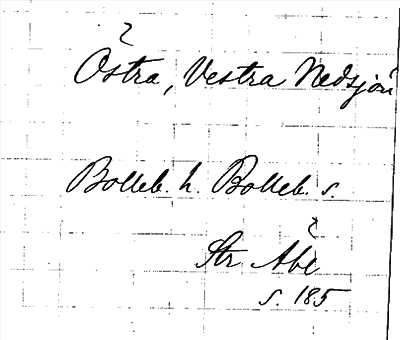 Östra, Vestra Nedsjön
Bolleb. h. Bolleb. s.
Str Åbc
s. 185